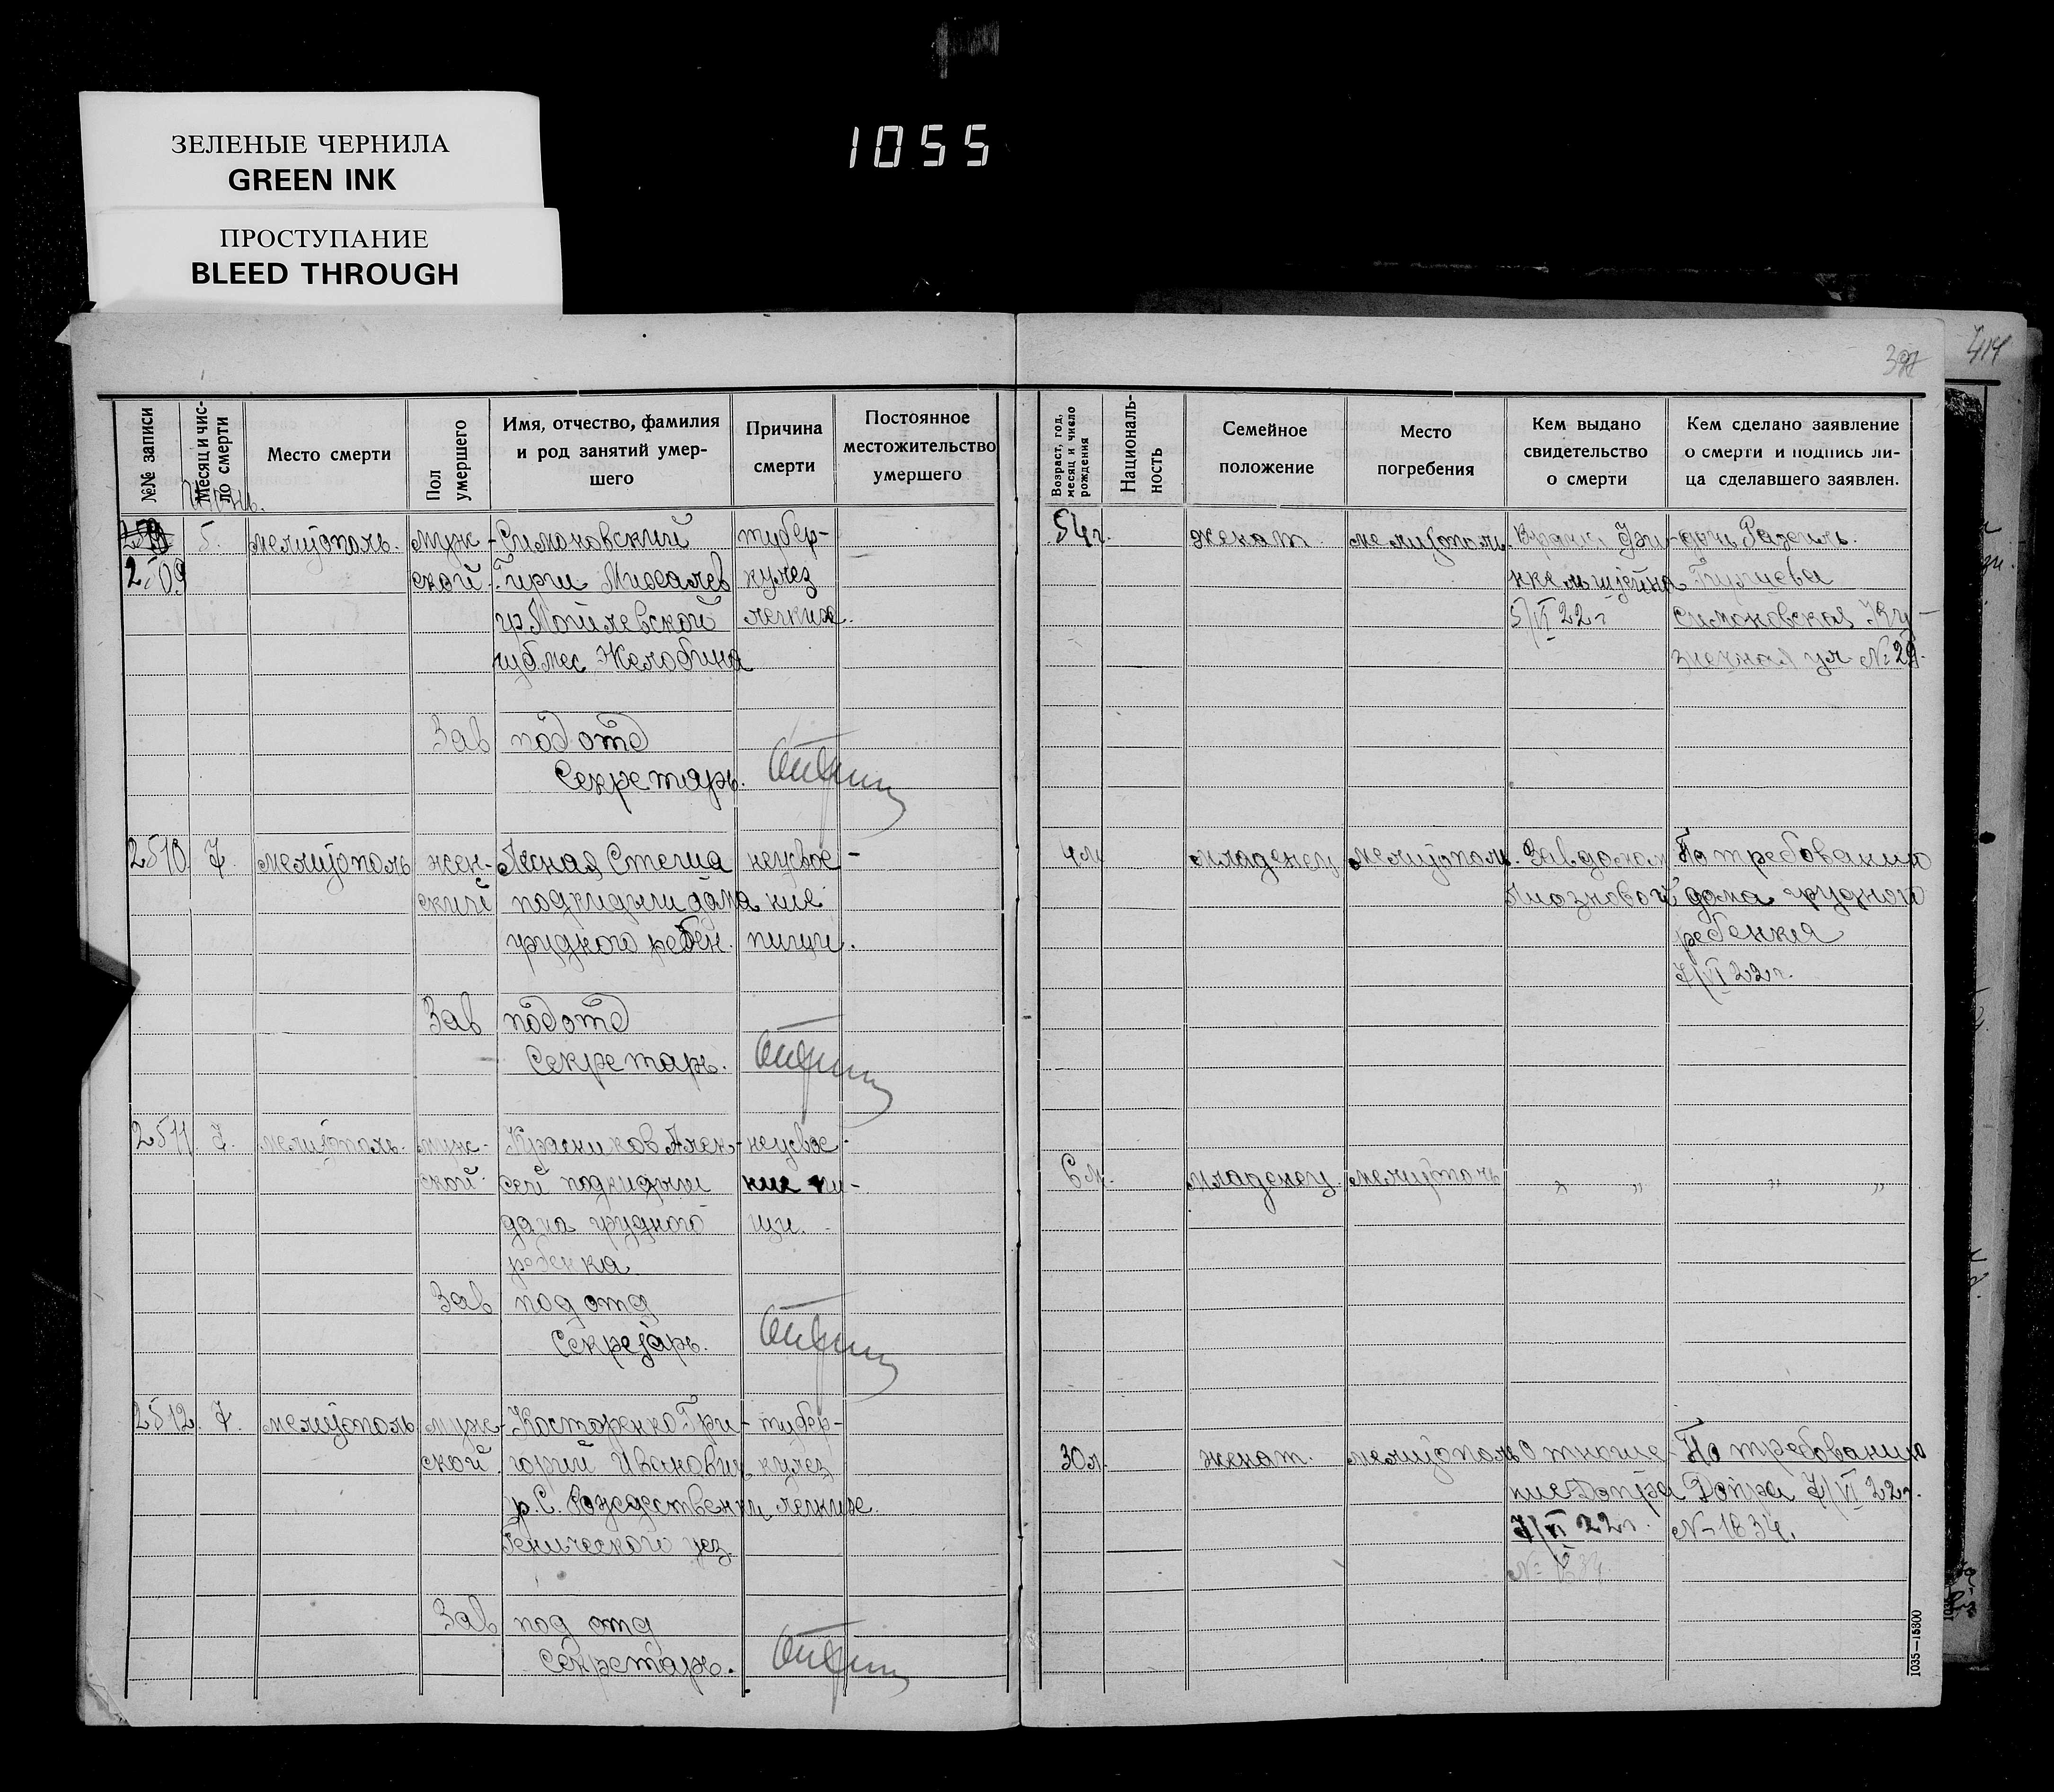 1055
ЗЕЛЕНЫЕ ЧЕРНИЛА
GREEN INK
ПРОСТУПАНИЕ
BLEED THROUGH
414
№№ записи
Месяц и чис-
ло смерти
Место смерти
Пол
умершего
Имя, отчество, фамилия
и род занятий умер-
шего
Причина
смерти
Постоянное
местожительство
умершего
Возраст, год,
месяц и число
рождения
Националь-
ность
Семейное
положение
Место
погребения
Кем выдано
свидетельство
о смерти
Кем сделано заявление
о смерти и подпись ли-
ца сделавшего заявлен.
2509
5.
мелитополь.
муж-
ской.
Симоновский
Гирш
гр Могилевской
губ мес Желобина
тубер-
кулез
легких.
54 г.
женат.
мелитополь.
Врачи
5/VI 22 г
дочь
Симоновская Ку-
знечная ул №
Зав подотд
Секретарь.
2510
7.
мелитополь
жен-
ский
Лесная Стеша
подкидыш дома
грудного ребен.
неусвое-
ние
пищи.
4 м
младенец
мелитополь.
Зав домом
По требованию
дома грудного
ребенка
7/VI 22 г.
Зав подотд
Секретарь.
2511.
7.
мелитополь.
муж-
ской.
Красников Алек-
сей подкидыш
дома грудного
ребенка
неусвое-
ние пи-
щи.
6 м.
младенец.
мелитополь
„ „
„ „
Зав под отд
Секретарь.
2512.
7.
мелитополь
муж-
ской.
Костаренко Гри-
горий Иванович
р. С.
Генического уез.
тубер-
кулез
легких.
30 л.
женат.
мелитополь
Отноше-
ние Допра
7/VI 22 г.
№ 1834.
По требованию
Допра 7/VI 22 г.
№ 1834.
Зав под отд
Секретарь.
1035—15300